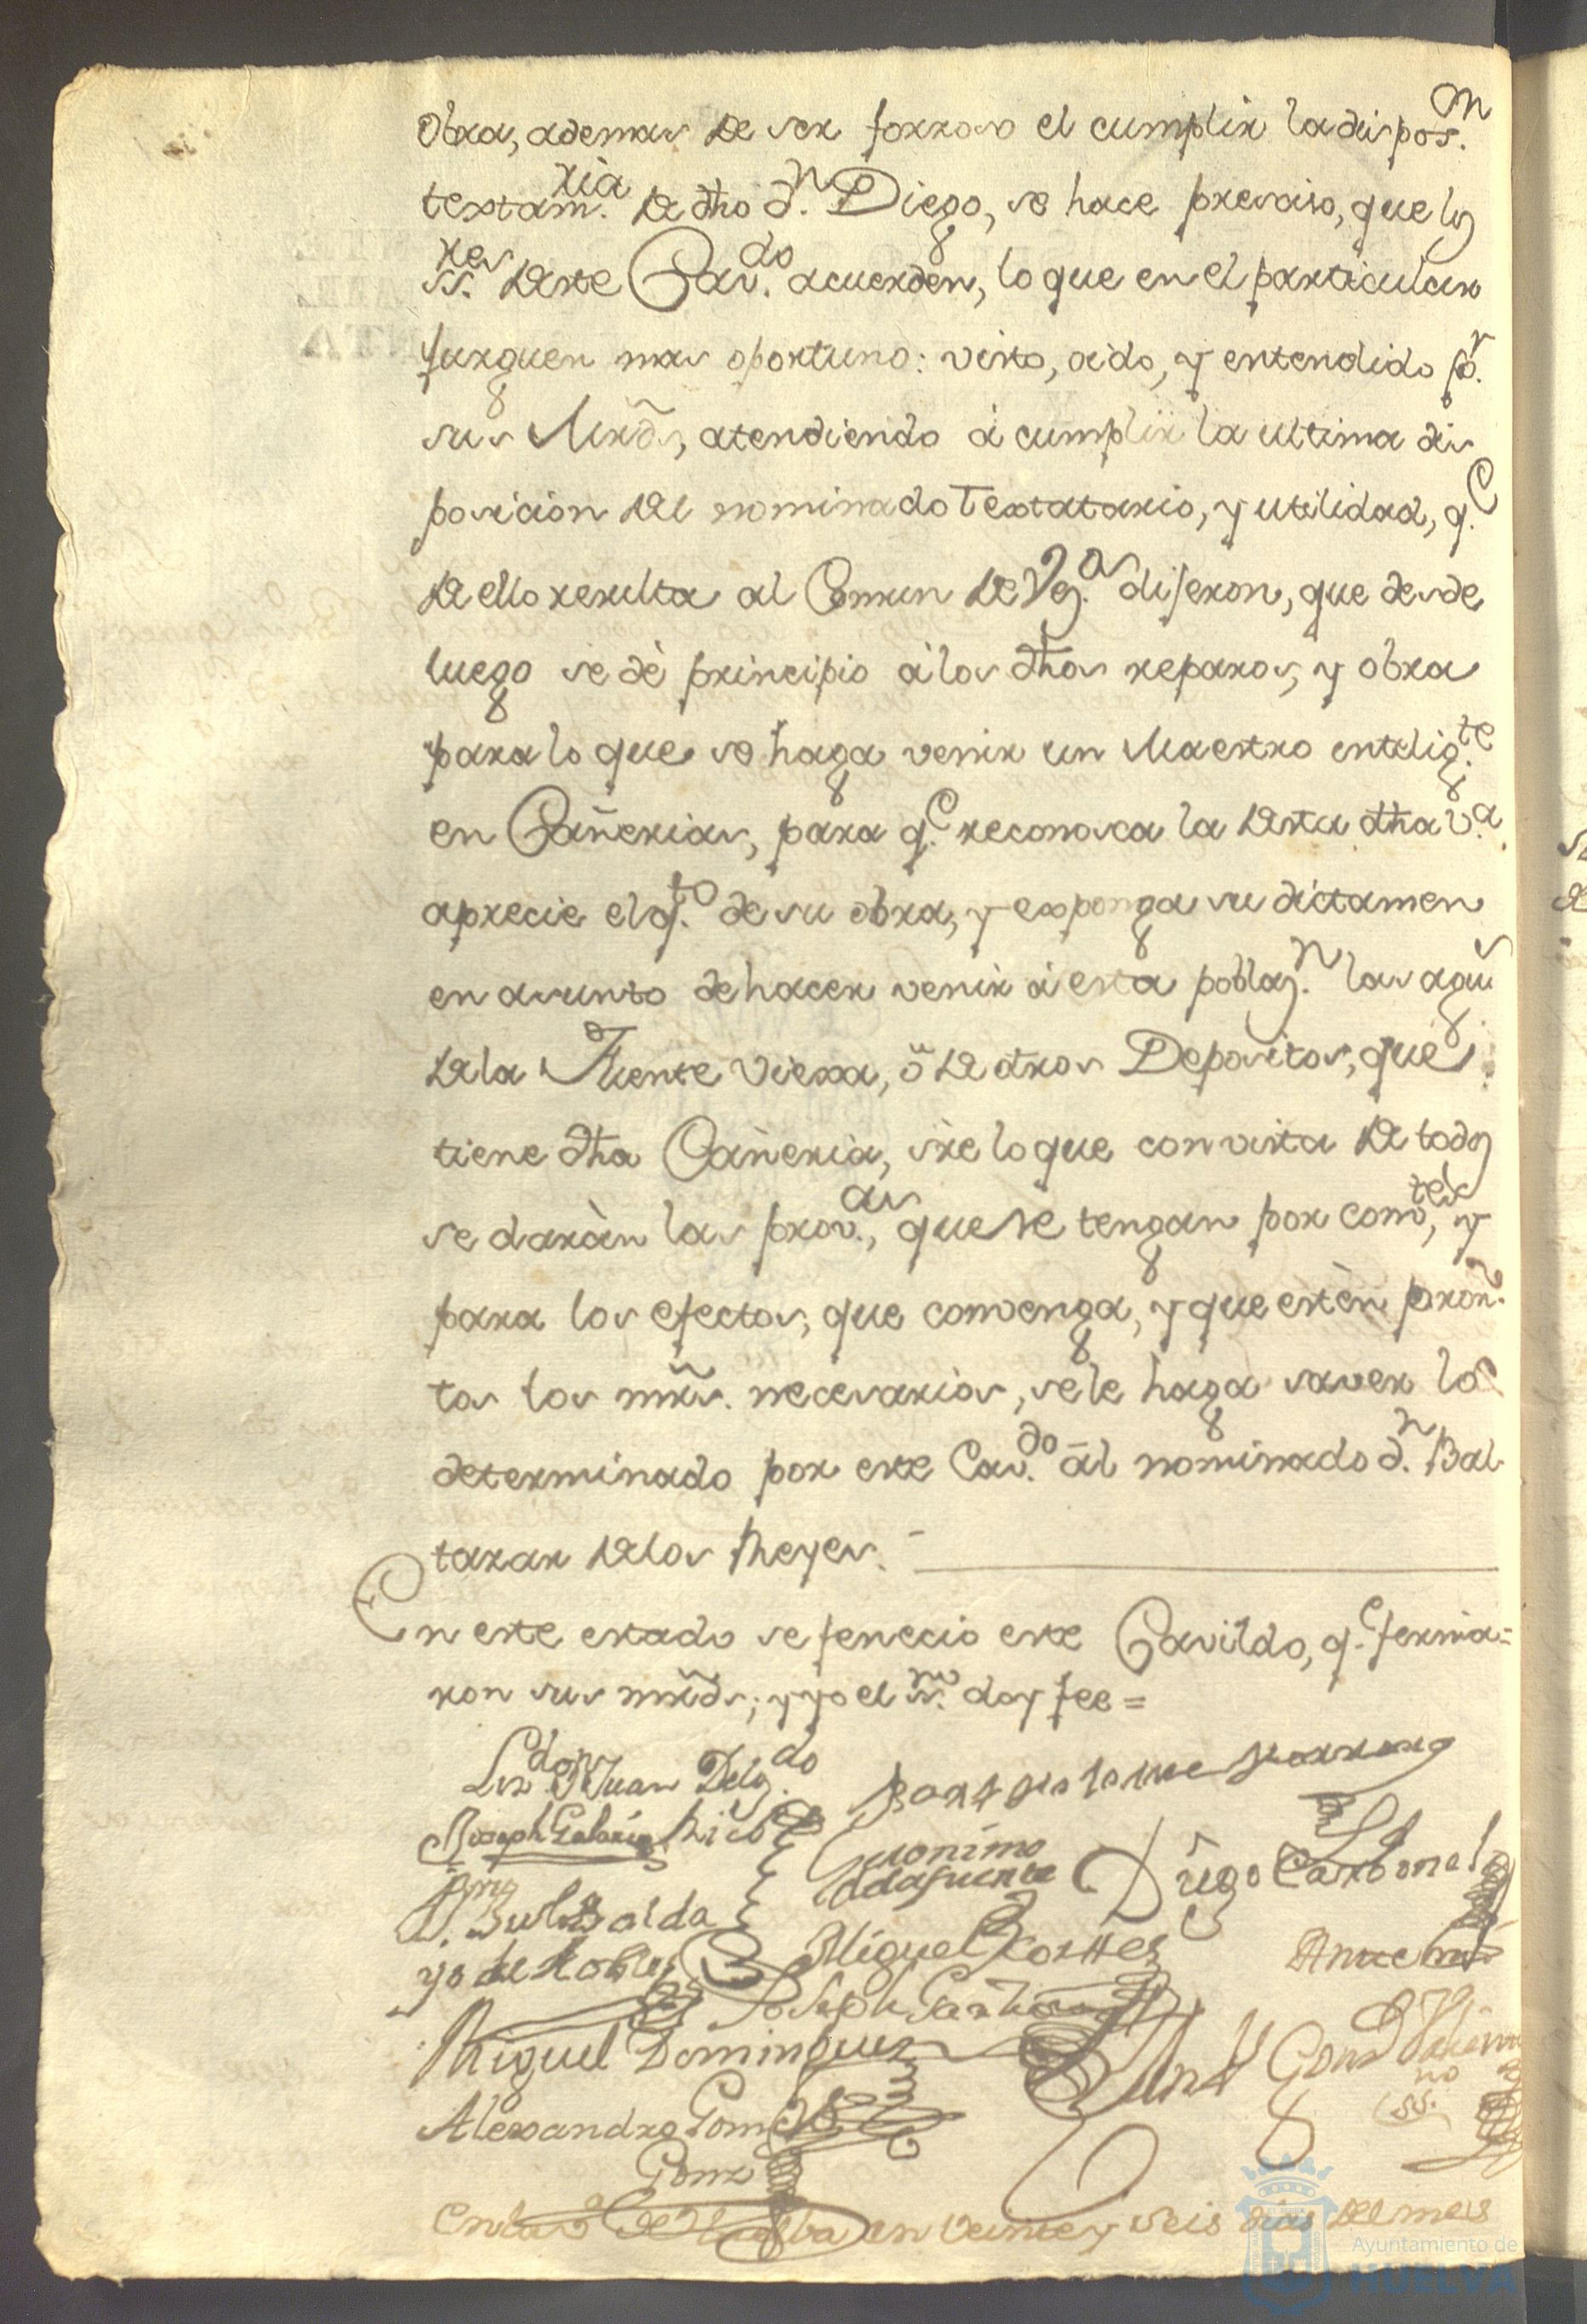 obra, ademas de ser forzoso el cumplir la dispos.n
textam.ria de dho d.n Diego, se hace presaiso, que los
ss.res deste Cav.do acuerden, lo que en el particular
jusguen mas oportuno: visto, oido, y entendido po.r
sus Mrds, atendiendo à cumplir la ultima dis
posicion del nominado Textatario, y utilidad, q.e
de ello resulta al Comun de Vez.os dijeron, que desde
luego se dè principio à los dhos reparos, y obra
para lo que se haga venir un Maestro entelig.te
en Cañerias, para q.e reconosca la desta dha v.a
aprecie el q.to de su obra, y exponga su dictamen
en asunto de hacer venir à esta poblaz.n las agus
de la Fuente Viexa, ö de otros Depositos, que
tiene dha Cañeria, sre lo que con vista de todo
se daràn las prov.as, que se tengan por comv.tes, y
para los efectos, que convenga, y que estèn pron-
tos los mrs. necesarios, se le haga saver lo
determinado por este Cav.do al nominado d.n Bal
tazar de los Reyes.
En este estado se fenecio este Cavildo, q.e fermia=
ron sus mrds; y yo el ss.no doy fee=
Liz.do Dn Juan Delg.do
Bartholome
Joseph Rico
Geronimo
de la fuente
Diego Carbonel
yo de Robles
Miguel Cortes
Ante mi
Joseph
Miguel Dominguez
Alexandro Gomez
Gonz
no
ss.
En la v.a de Huelba en veinte y seis dias del mes
Ayuntamiento de
HUELVA